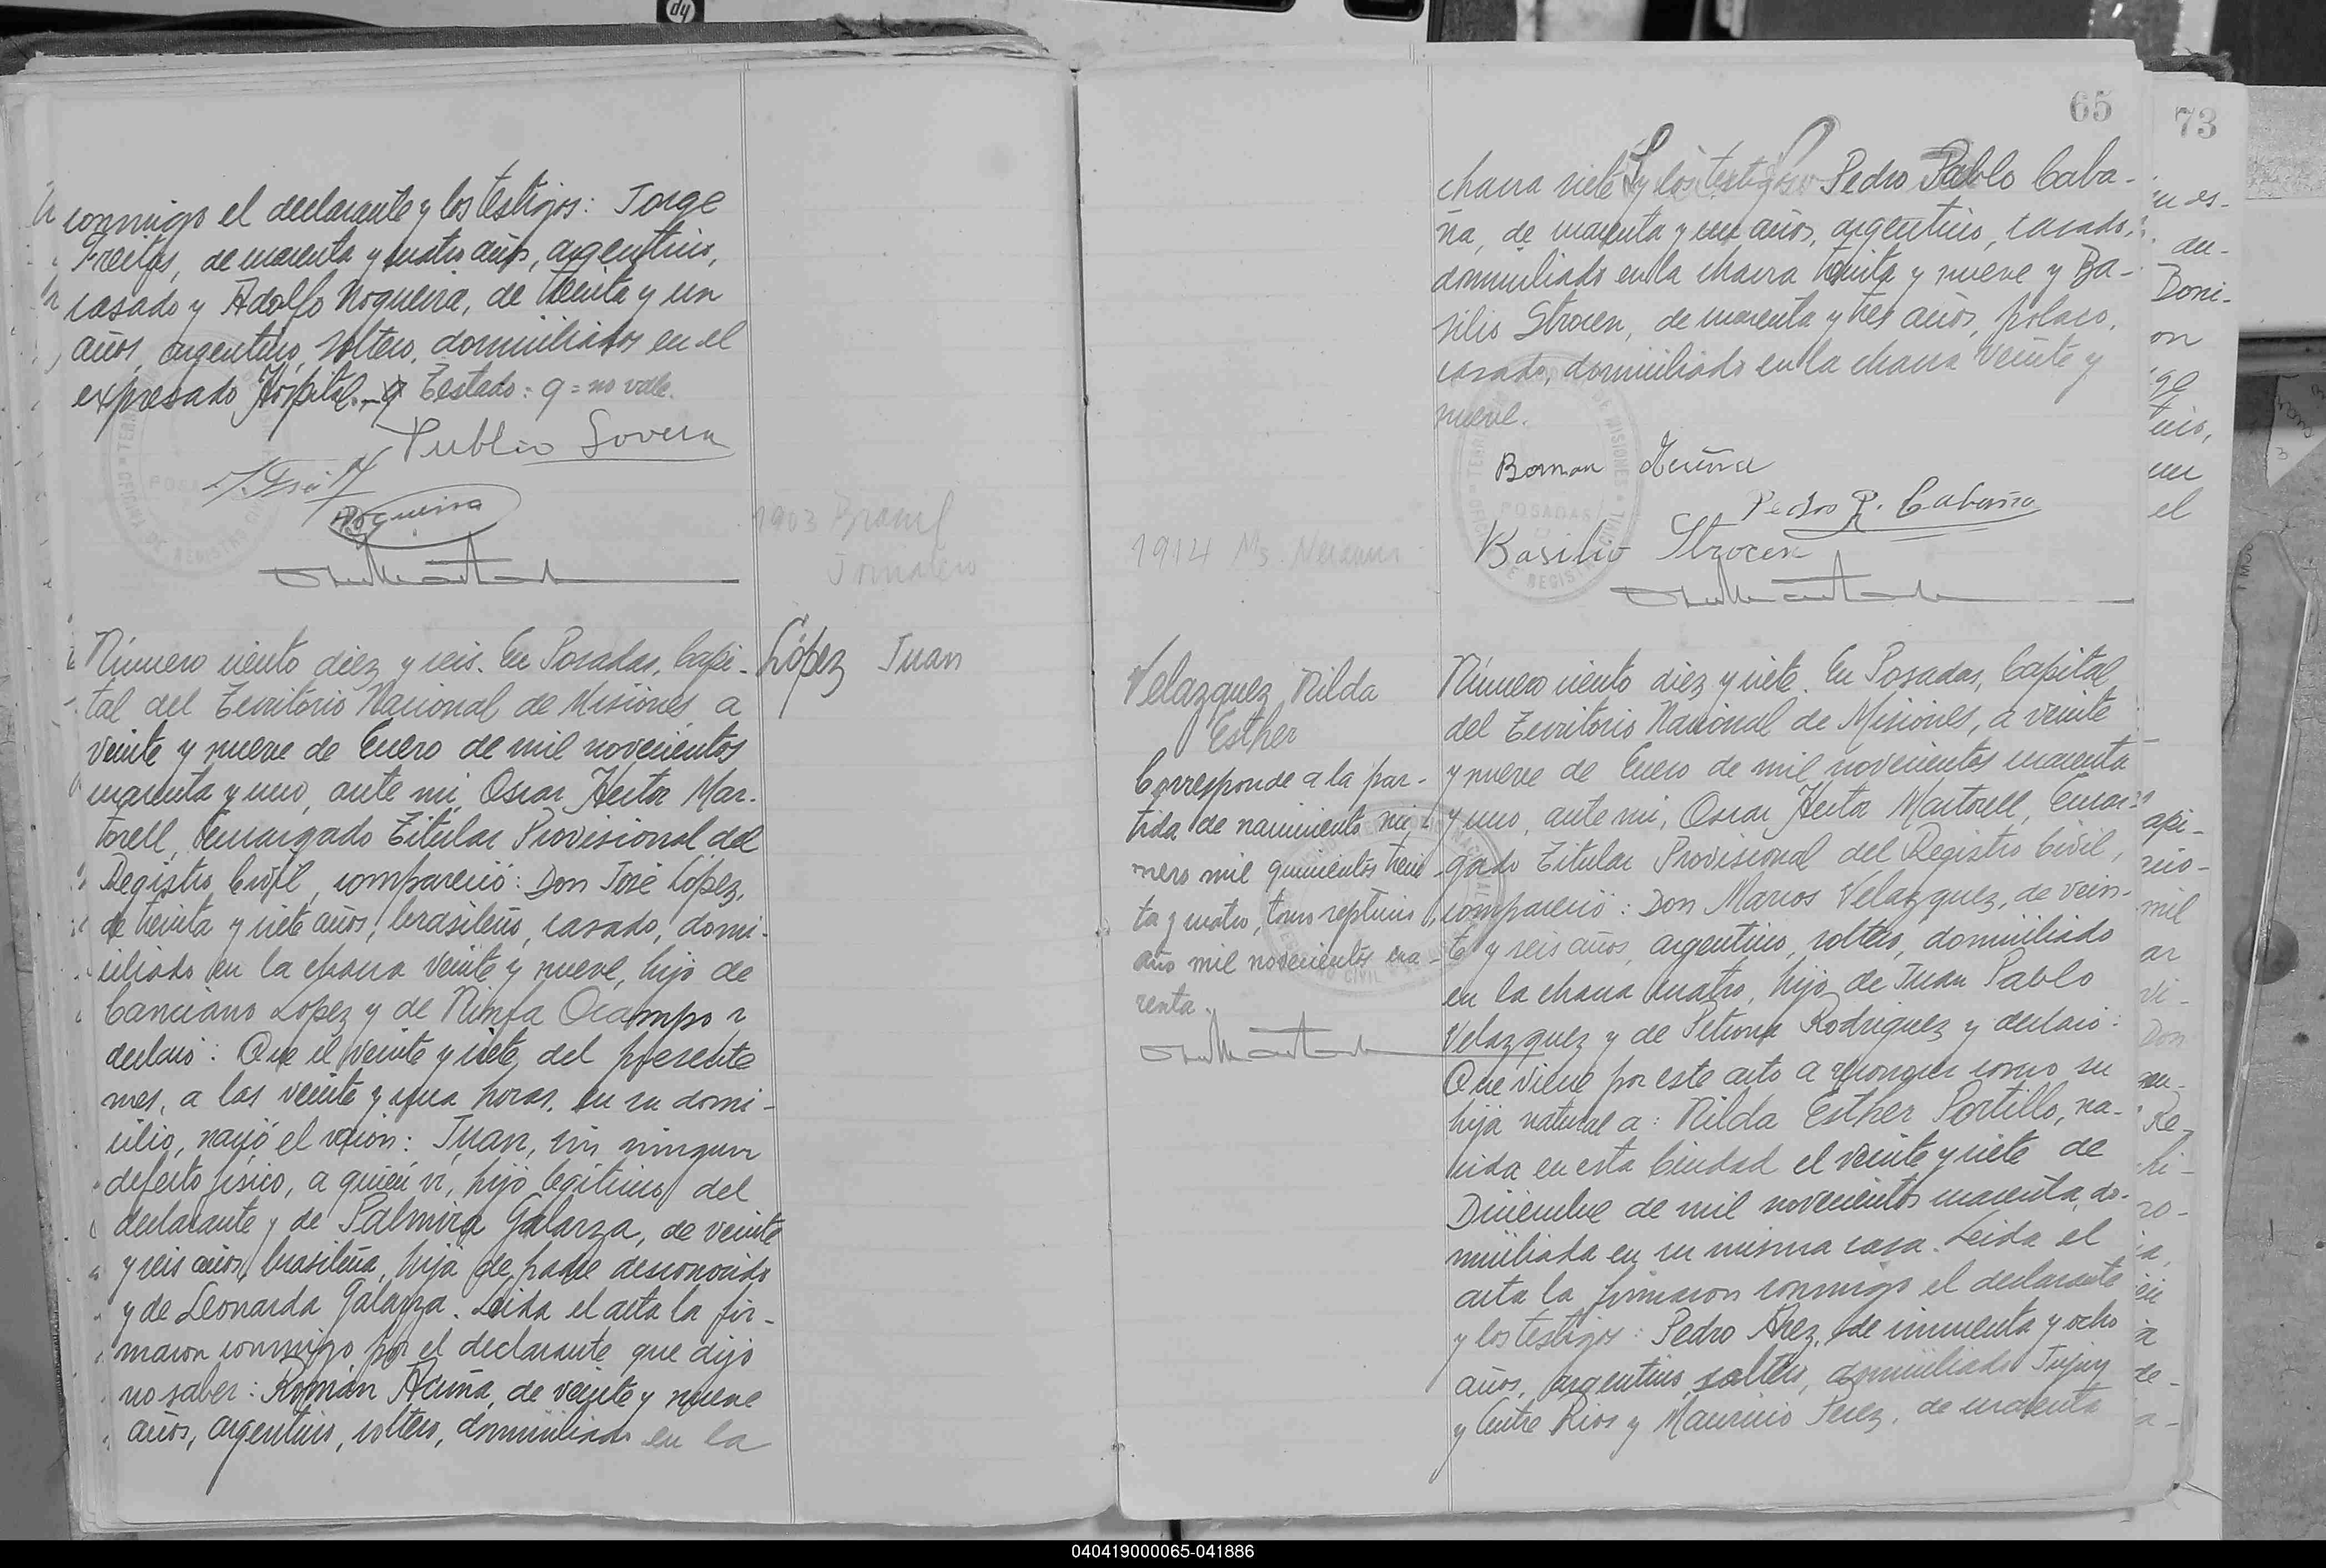 conmigo el declarante y los testigos: Jorge
Freitas, de cuarenta y cuatro años, argentino,
casado y Adolfo Nogueira, de treinta y un
años, argentino, soltero, domiciliados en el
expresado Hospital.- q Testado: q = no vale.
Publio Lovera
Nogueira
1903 Brasil
Jornalero
López Juan
Número ciento diez y seis. En Posadas, Capi-
tal del Territorio Nacional de Misiones, a
veinte y nueve de Enero de mil novecientos
cuarenta y uno, ante mi, Oscar Hector Mar-
torell, Encargado Titular Provisional del
Registro Civil, compareció: Don José López,
de treinta y siete años, brasileño, casado, domi-
ciliado en la chacra veinte y nueve, hijo de
Canciano López y de Ninfa Ocampo y
declaró: Que el veinte y siete del presente
mes, a las veinte y una horas, en su domi-
cilio, nació el varón: Juan, sin ningun
defecto físico, a quien vi, hijo legítimo del
declarante y de Palmira Galarza, de veinte
y seis años, brasileña, hija de padre desconocido
y de Leonarda Galarza. Leida el acta la fir-
maron conmigo por el declarante que dijo
no saber: Román Acuña, de veinte y nueve
años, argentino, soltero, domiciliado en la
65
chacra siete y los testigos Pedro Pablo Caba-
ña, de cuarenta y un años, argentino, casado,
domiciliado en la chacra treinta y nueve y Ba-
silio Strocen, de cuarenta y tres años, polaco,
casado, domiciliado en la chacra veinte y
nueve.
Roman Acuña
Pedro P. Cabaña
Basilio Strocen
1914 Ms.
Velazquez Nilda
Esther
Corresponde a la par-
tida de nacimiento nú-
mero mil quinientos trein
ta y cuatro, tomo septimo,
año mil novecientos cua-
renta.
Número ciento diez y siete. En Posadas, Capital
del Territorio Nacional de Misiones, a veinte
y nueve de Enero de mil novecientos cuarenta
y uno, ante mi, Oscar Hector Martorell, Encar-
gado Titular Provisional del Registro Civil,
compareció: Don Marcos Velazquez, de vein-
te y seis años, argentino, soltero, domiciliado
en la chacra cuatro, hijo de Juan Pablo
Velazquez y de Petrona Rodriguez y declaró:
Que viene por este acto a reconocer como su
hija natural a: Nilda Esther Portillo, na-
cida en esta Ciudad el veinte y siete de
Diciembre de mil novecientos cuarenta, do-
miciliada en su misma casa. Leida el
acta la firmaron conmigo el declarante
y los testigos: Pedro Paez, de cincuenta y ocho
años, argentino, soltero, domiciliado Jujuy
y Entre Rios y Mauricio Perez, de cuarenta
73
040419000065-041886